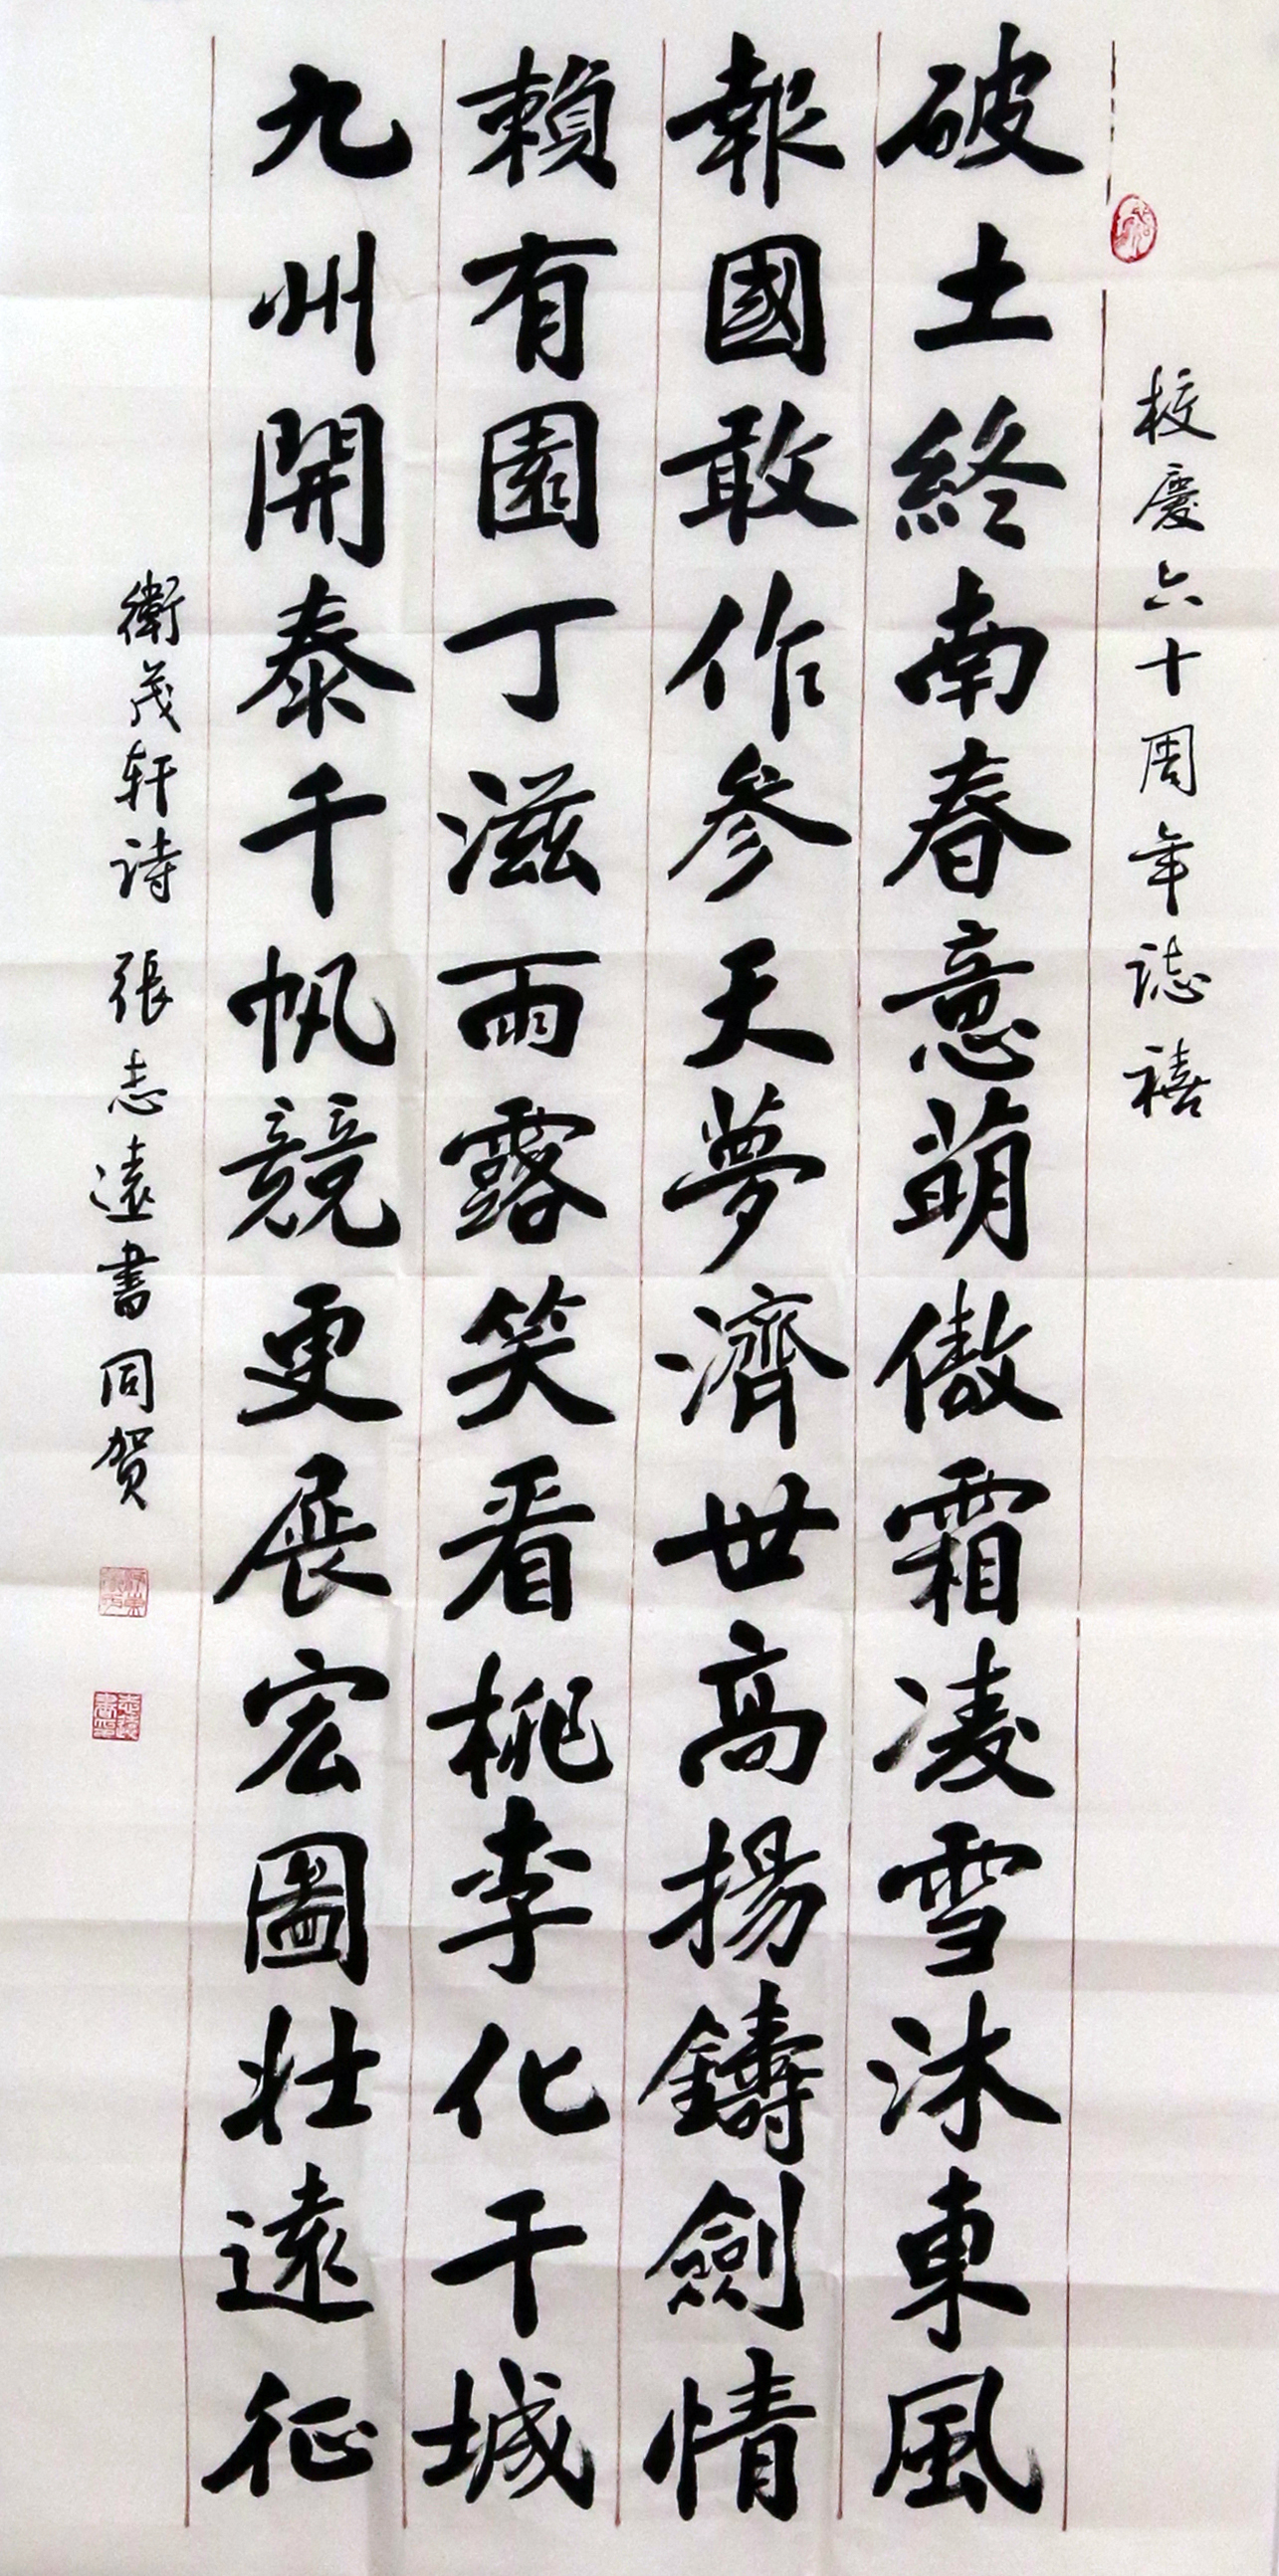 校慶六十周年誌禧
破土終南春意萌傲霜凌雪沐東風
報國敢作參天夢濟世高揚鑄劍情
賴有園丁滋雨露笑看桃李化干城
九州開泰千帆競更展宏圖壯遠征
衛茂轩诗 張志遠書同贺